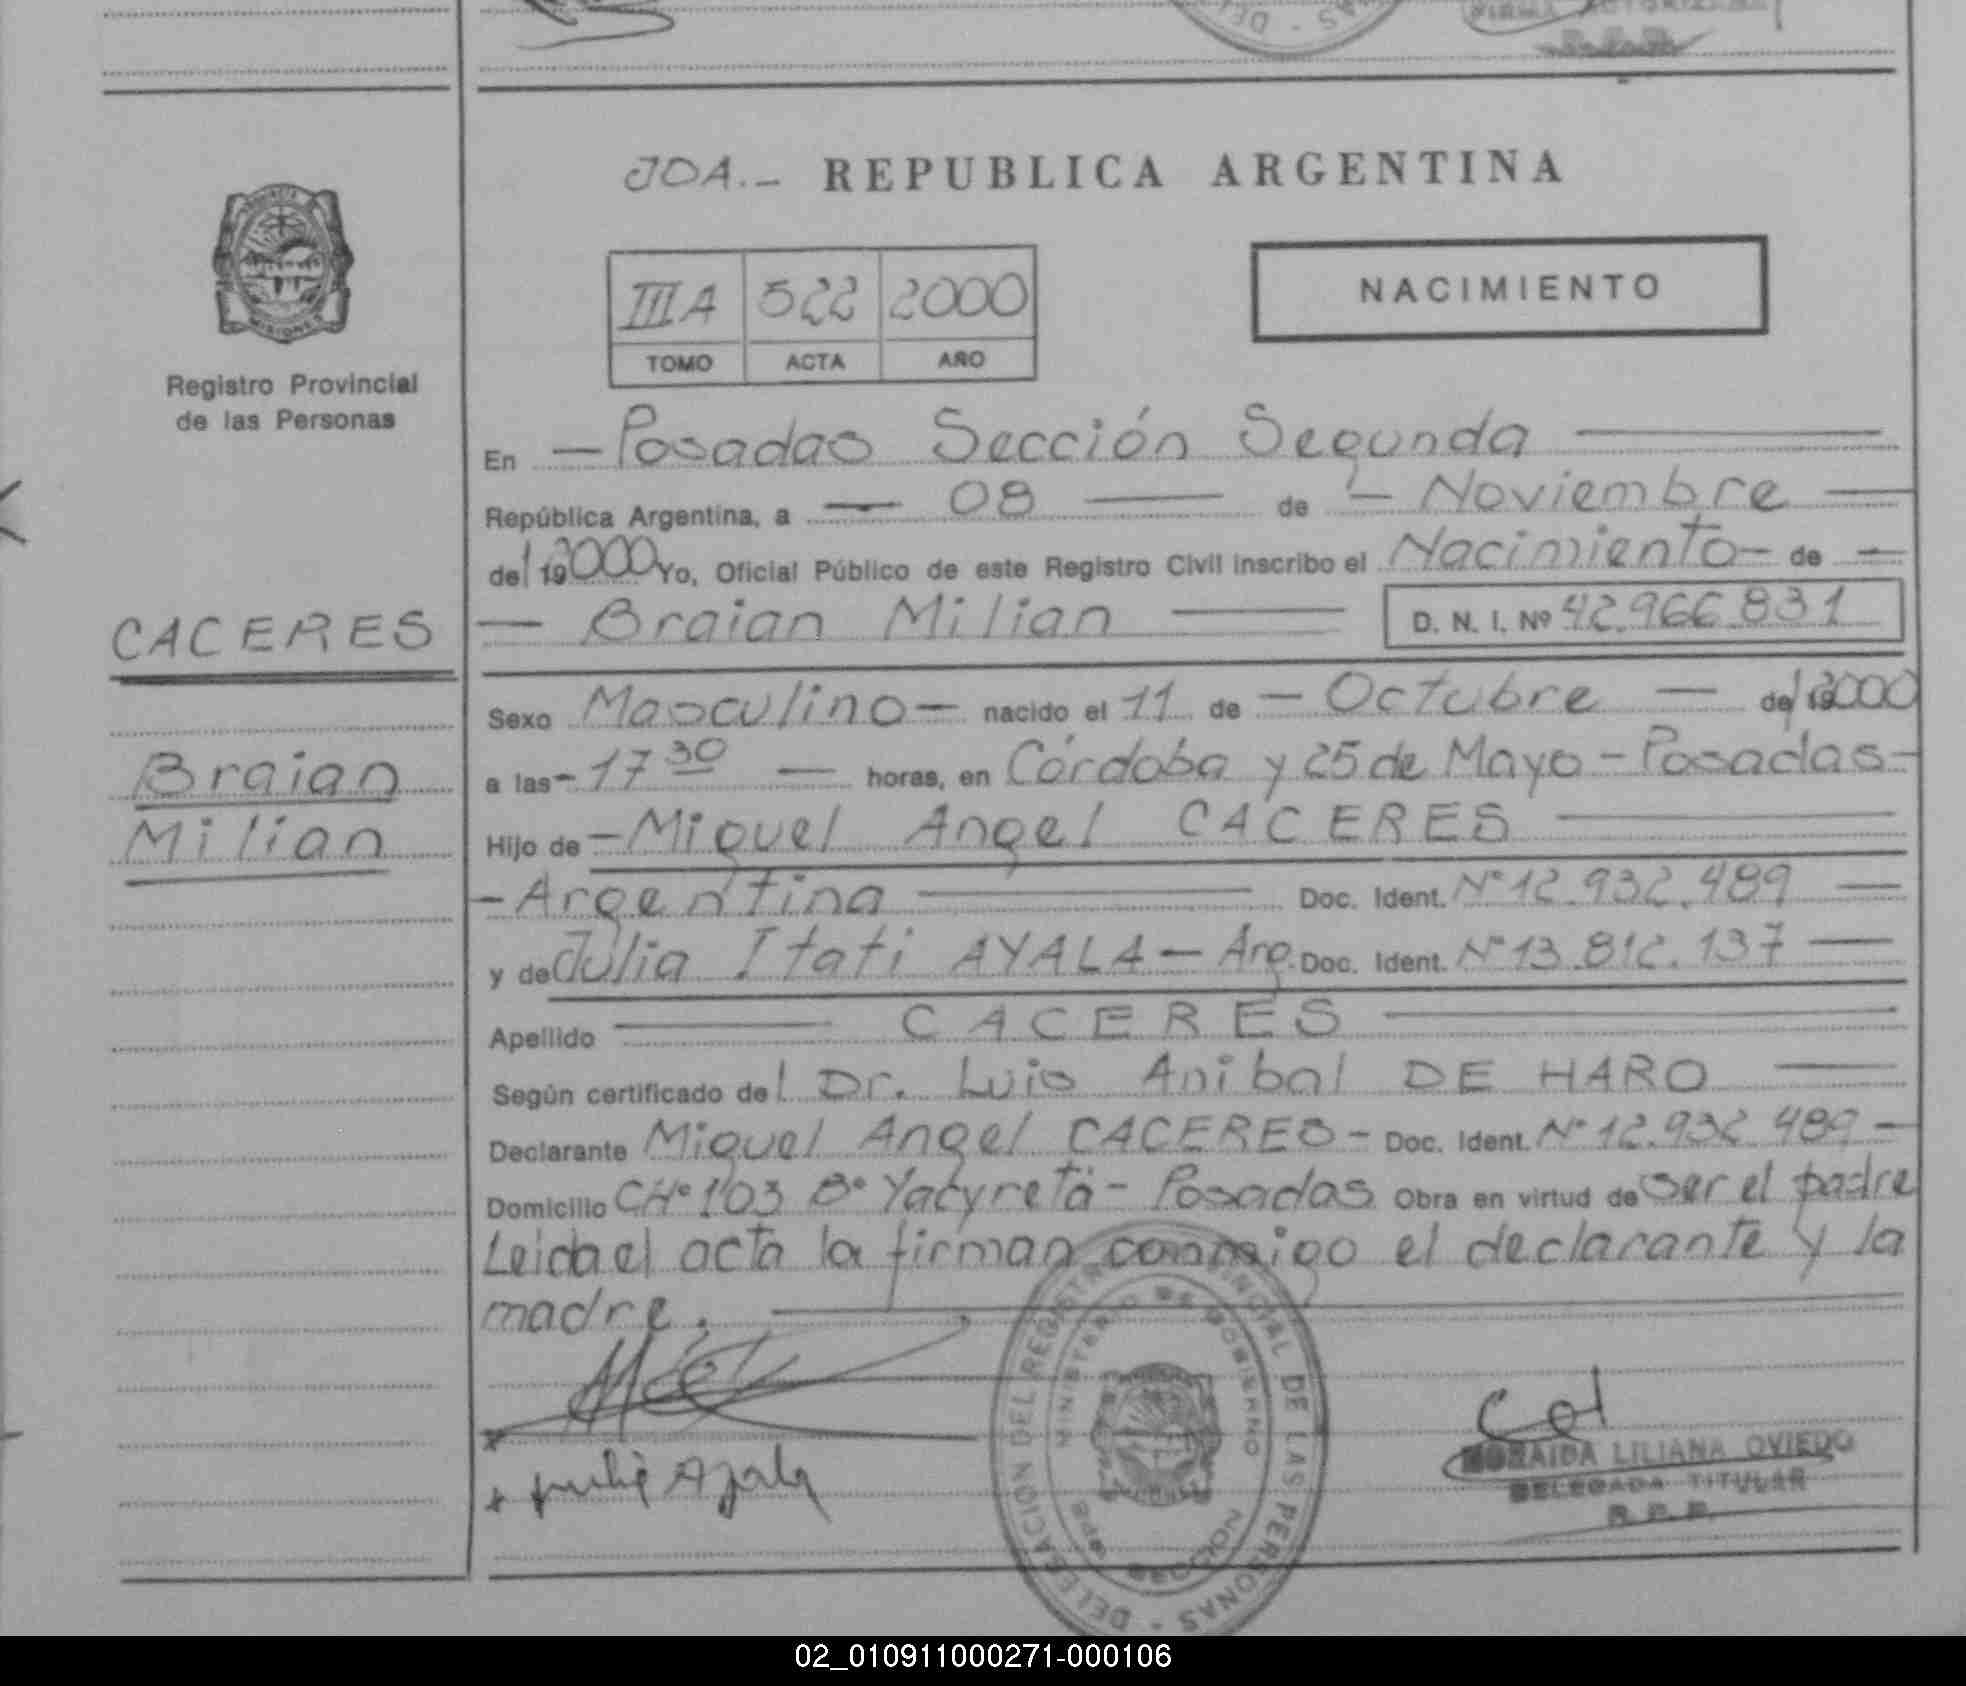 JOA.- REPUBLICA ARGENTINA
III A 522 2000
TOMO ACTA AÑO
NACIMIENTO
MISIONES
Registro Provincial
de las Personas
CACERES
Braian
Milian
En - Posadas Sección Segunda
República Argentina, a - 08 - de - Noviembre
del 2000 Yo, Oficial Público de este Registro Civil inscribo el Nacimiento - de -
- Braian Milian - D. N. I. Nº 42.966.831
Sexo Masculino - nacido el 11 de - Octubre - del 2000
a las - 17 30 - horas, en Córdoba y 25 de Mayo - Posadas -
Hijo de - Miguel Angel CACERES
- Argentina - Doc. Ident. Nº 12.932.489 -
y de Julia Itati AYALA - Arg. Doc. Ident. Nº 13.812.137 -
Apellido - CACERES -
Según certificado del Dr. Luis Anibal DE HARO -
Declarante Miguel Angel CACERES - Doc. Ident. Nº 12.932.489 -
Domicilio CHº 103 Bº Yacyretá - Posadas Obra en virtud de ser el padre
Leida el acta la firman conmigo el declarante y la
madre.
Julia Ayala
DELEGACION DEL REGISTRO PROVINCIAL DE LAS PERSONAS
MINISTERIO DE GOBIERNO
SECCION
LILIANA OVIEDO
DELEGADA TITULAR
R. P. P.
02_010911000271-000106